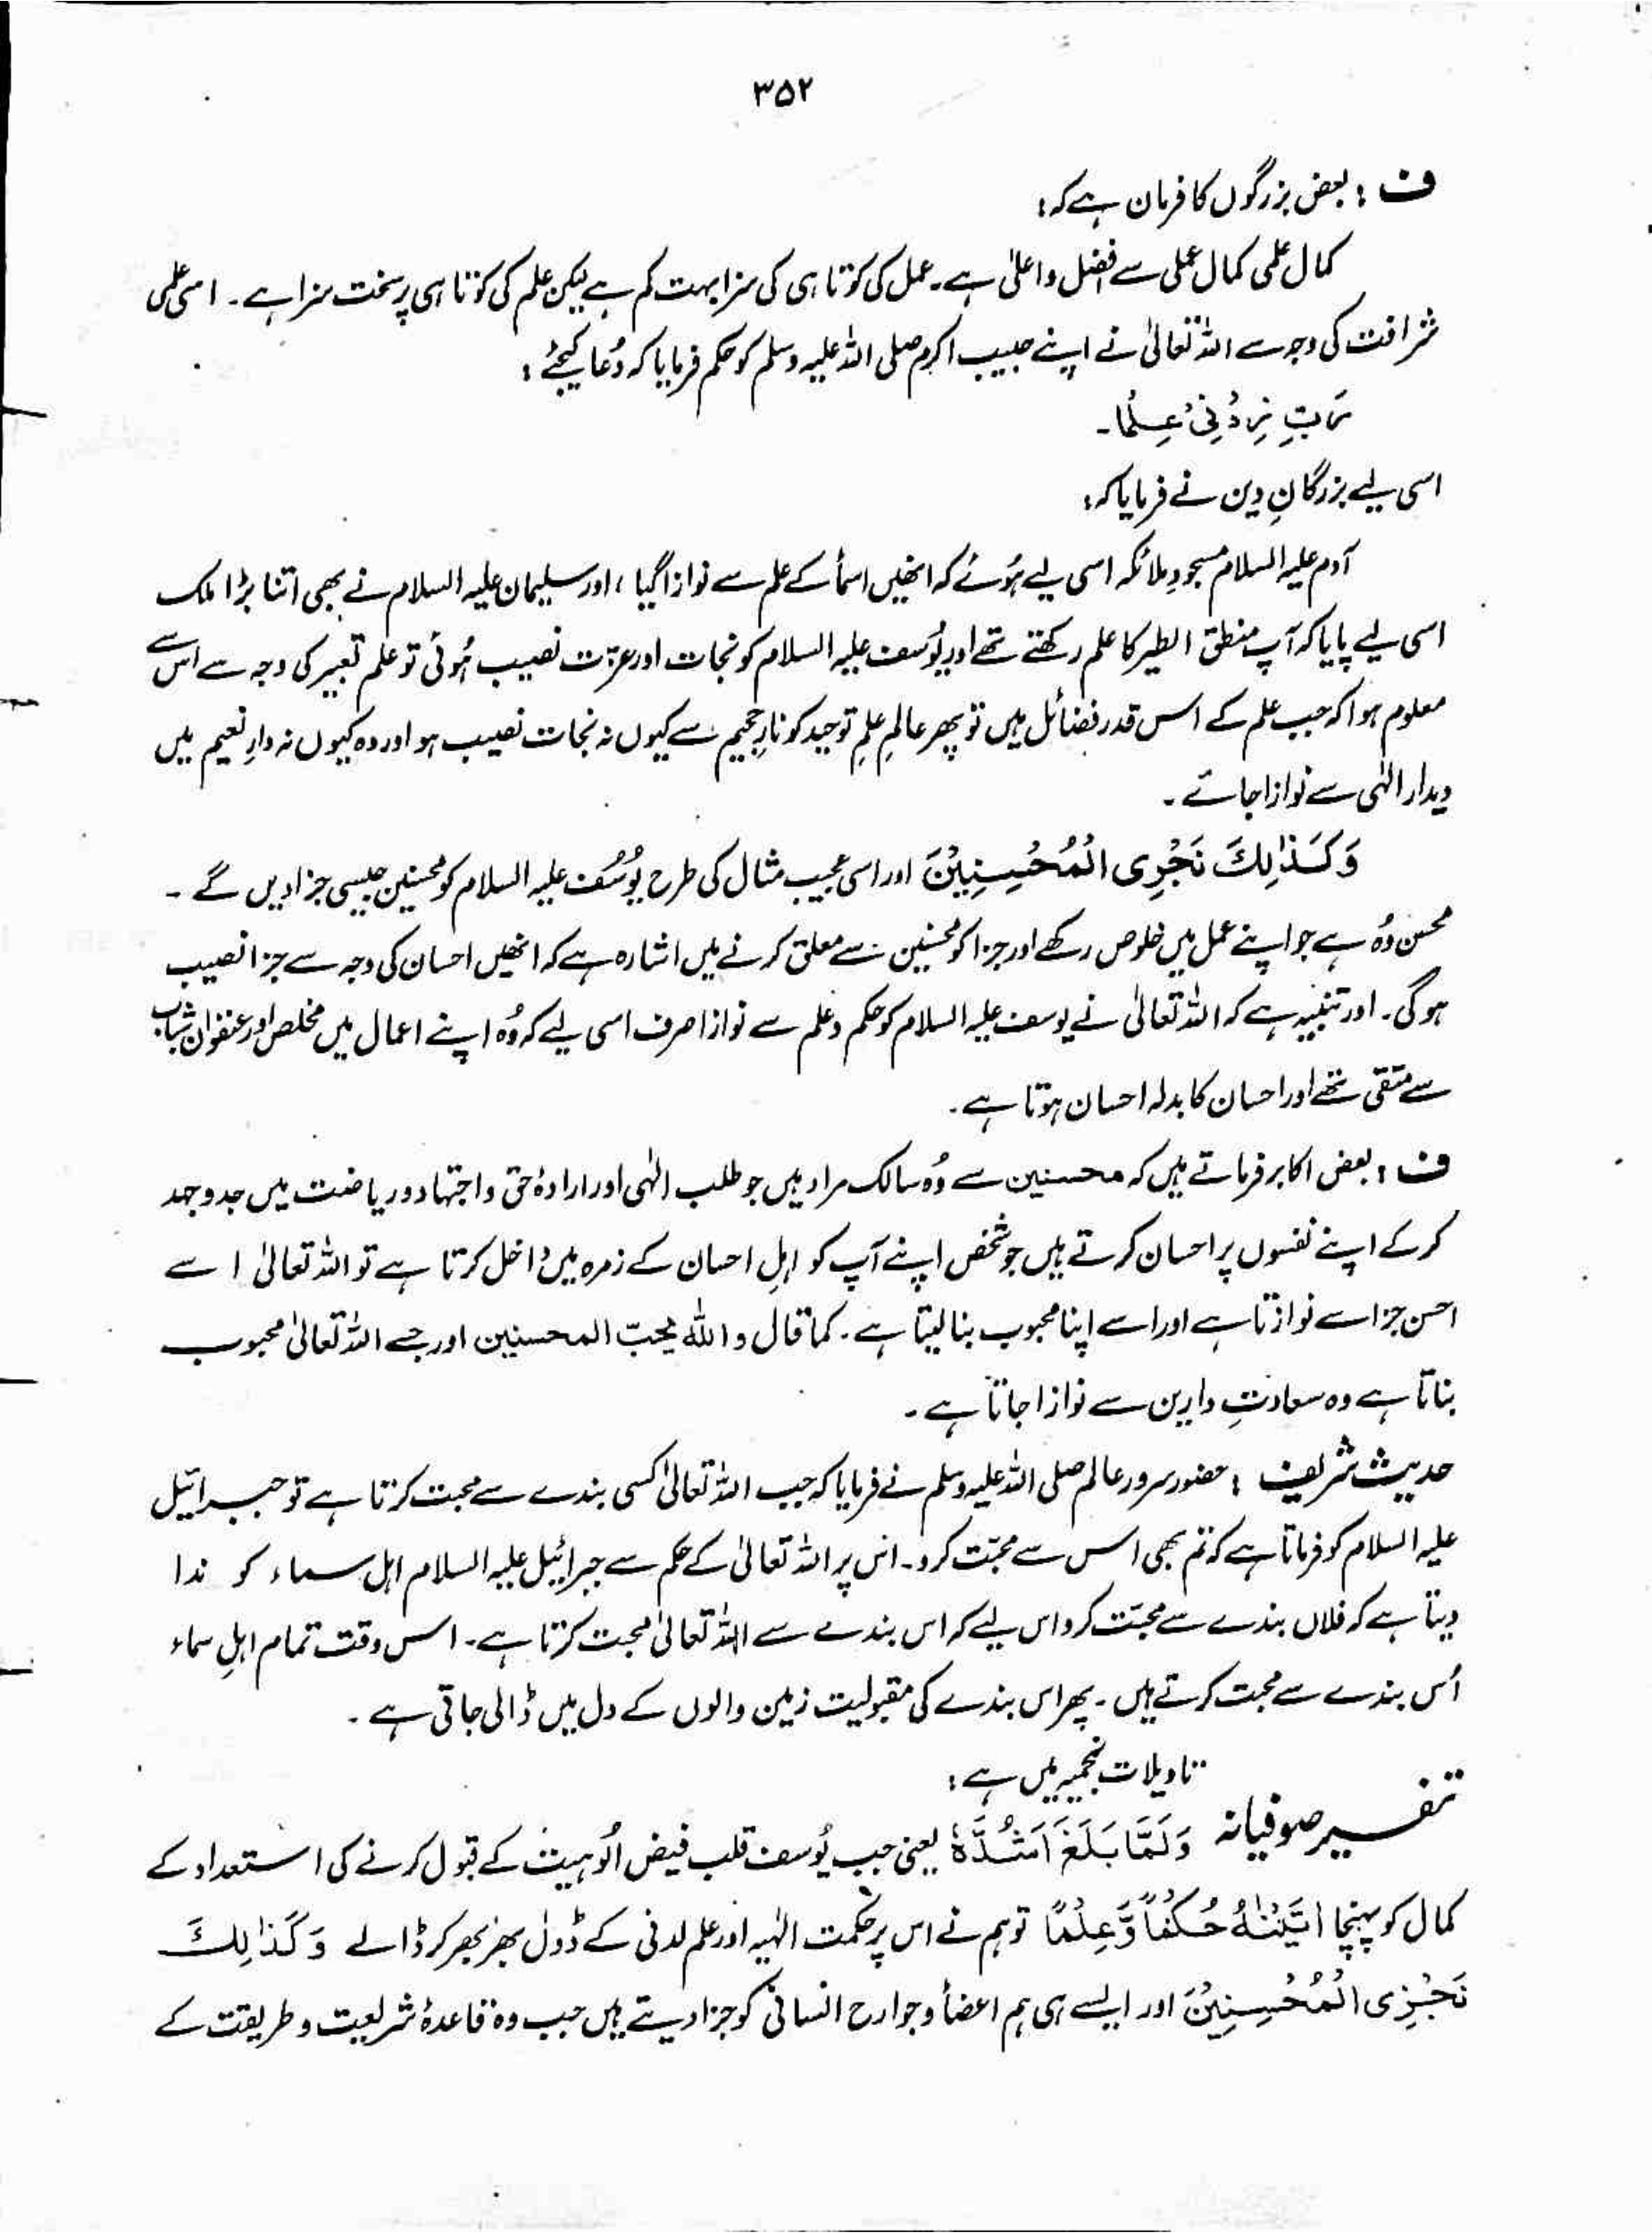 ۳۵۲
ف : بعض بزرگوں کا فرمان ہے کہ :
کمال علمی کمال عملی سے افضل و اعلیٰ ہے۔ عمل کی کوتاہی کی سزا بہت کم ہے لیکن علم کی کوتاہی پر سخت سزا ہے۔ اسی علمی
شرافت کی وجہ سے اللہ تعالیٰ نے اپنے حبیب اکرم صلی اللہ علیہ وسلم کو حکم فرمایا کہ دُعا کیجئے :
رَبِّ زِدْنِیْ عِلْمًا۔
اسی لیے بزرگانِ دین نے فرمایا کہ :
آدم علیہ السلام مسجودِ ملائکہ اسی لیے ہُوئے کہ انھیں اسمأ کے علم سے نوازا گیا ، اور سلیمان علیہ السلام نے بھی اتنا بڑا ملک
اسی لیے پایا کہ آپ منطق الطیر کا علم رکھتے تھے اور یُوسف علیہ السلام کو نجات اور عزت نصیب ہُوئی تو علم تعبیر کی وجہ سے اس سے
معلوم ہوا کہ جب علم کے اس قدر فضائل ہیں تو پھر عالمِ علمِ توحید کو نارِ جحیم سے کیوں نہ نجات نصیب ہو اور وہ کیوں نہ دارِ نعیم میں
دیدار الٰہی سے نوازا جائے ۔
وَكَذٰلِكَ نَجْزِی الْمُحْسِنِیْنَ اور اسی عجیب مثال کی طرح یُوسُف علیہ السلام کو محسنین جیسی جزا دیں گے ۔
محسن وُہ ہے جو اپنے عمل میں خلوص رکھے اور جزا کو محسنین سے معلق کرنے میں اشارہ ہے کہ انھیں احسان کی وجہ سے جزا نصیب
ہوگی۔ اور تنبیہ ہے کہ اللہ تعالیٰ نے یوسف علیہ السلام کو حکم و علم سے نوازا صرف اسی لیے کہ وُہ اپنے اعمال میں مخلص اور عنفوان شباب
سے متقی تھے اور احسان کا بدلہ احسان ہوتا ہے ۔
ف : بعض اکابر فرماتے ہیں کہ محسنین سے وُہ سالک مراد ہیں جو طلب الٰہی اور ارادۂ حق و اجتہاد و ریاضت میں جدوجہد
کرکے اپنے نفسوں پر احسان کرتے ہیں جو شخص اپنے آپ کو اہلِ احسان کے زمرہ میں داخل کرتا ہے تو اللہ تعالیٰ اسے
احسن جزا سے نوازتا ہے اور اسے اپنا محبوب بنا لیتا ہے۔ کما قال واللہ یحبّ المحسنین اور جسے اللہ تعالیٰ محبوب
بناتا ہے وہ سعادتِ دارین سے نوازا جاتا ہے ۔
حدیث شریف : حضور سرور عالم صلی اللہ علیہ وسلم نے فرمایا کہ جب اللہ تعالیٰ کسی بندے سے محبت کرتا ہے تو جبرائیل
علیہ السلام کو فرماتا ہے کہ تم بھی اس سے محبّت کرو۔ اس پر اللہ تعالیٰ کے حکم سے جبرائیل علیہ السلام اہل سماء کو ندا
دیتا ہے کہ فلاں بندے سے محبّت کرو اس لیے کہ اس بندے سے اللہ تعالیٰ محبت کرتا ہے۔ اس وقت تمام اہلِ سماء
اُس بندے سے محبت کرتے ہیں۔ پھر اس بندے کی مقبولیت زمین والوں کے دل میں ڈالی جاتی ہے ۔
تاویلات نجمیہ میں ہے :
تفسیر صوفیانہ وَلَمَّا بَلَغَ اَشُدَّهٗ یعنی جب یُوسف قلب فیض اُلوہیت کے قبول کرنے کی استعداد کے
کمال کو پہنچا اٰتَیْنٰهُ حُكْمًا وَّعِلْمًا تو ہم نے اس پر حکمت الٰہیہ اور علم لدنی کے ڈول بھر بھر کر ڈالے وَكَذٰلِكَ
نَجْزِی الْمُحْسِنِیْنَ اور ایسے ہی ہم اعضأ و جوارح انسانی کو جزا دیتے ہیں جب وہ قاعدۂ شریعت و طریقت کے